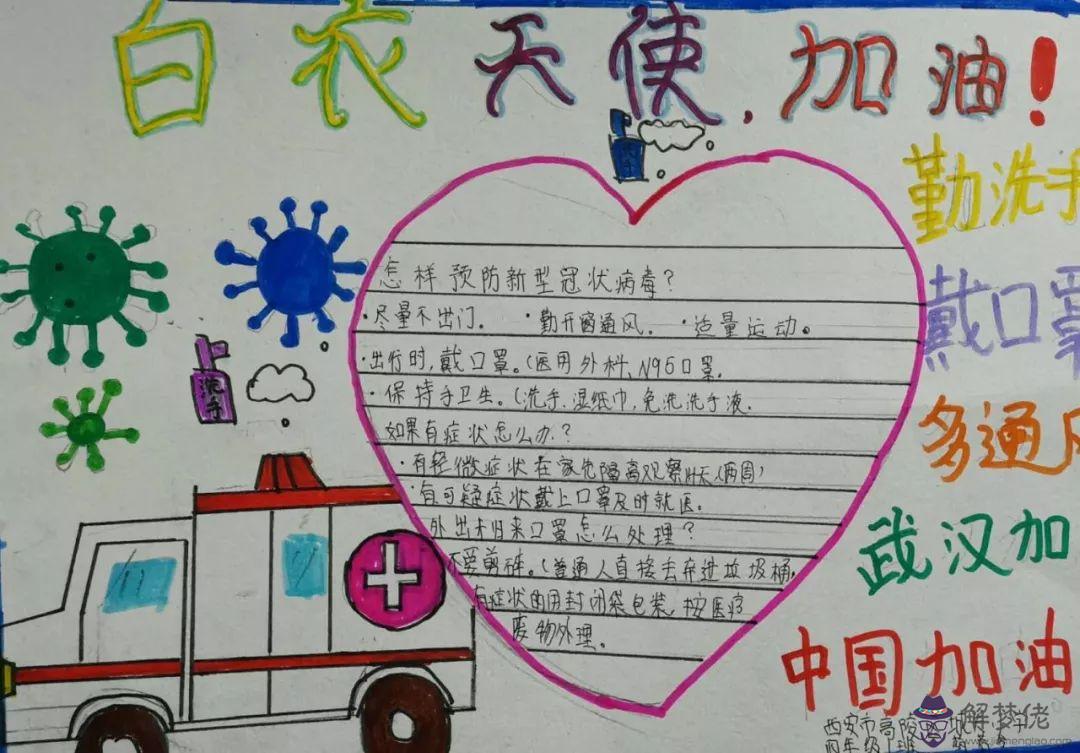 白衣天使,加油!
洗手
勤洗手
戴口罩
多通风
武汉加
中国加油
洗手
怎样预防新型冠状病毒?
·尽量不出门. ·勤开窗通风. ·适量运动。
·出行时,戴口罩。(医用外科、N95口罩.
·保持手卫生。(洗手.湿纸巾,免洗洗手液.
如果有症状怎么办?
·有轻微症状在家先隔离观察 天(两周)
·有可疑症状戴上口罩及时就医。
外出 归来口罩怎么处理?
不要剪碎。(普通人直接丢弃进垃圾桶,
有症状的用封闭袋包装.按医疗
废物处理。
西安市高陵
四年级1班
解梦佬
jiemenglao.com